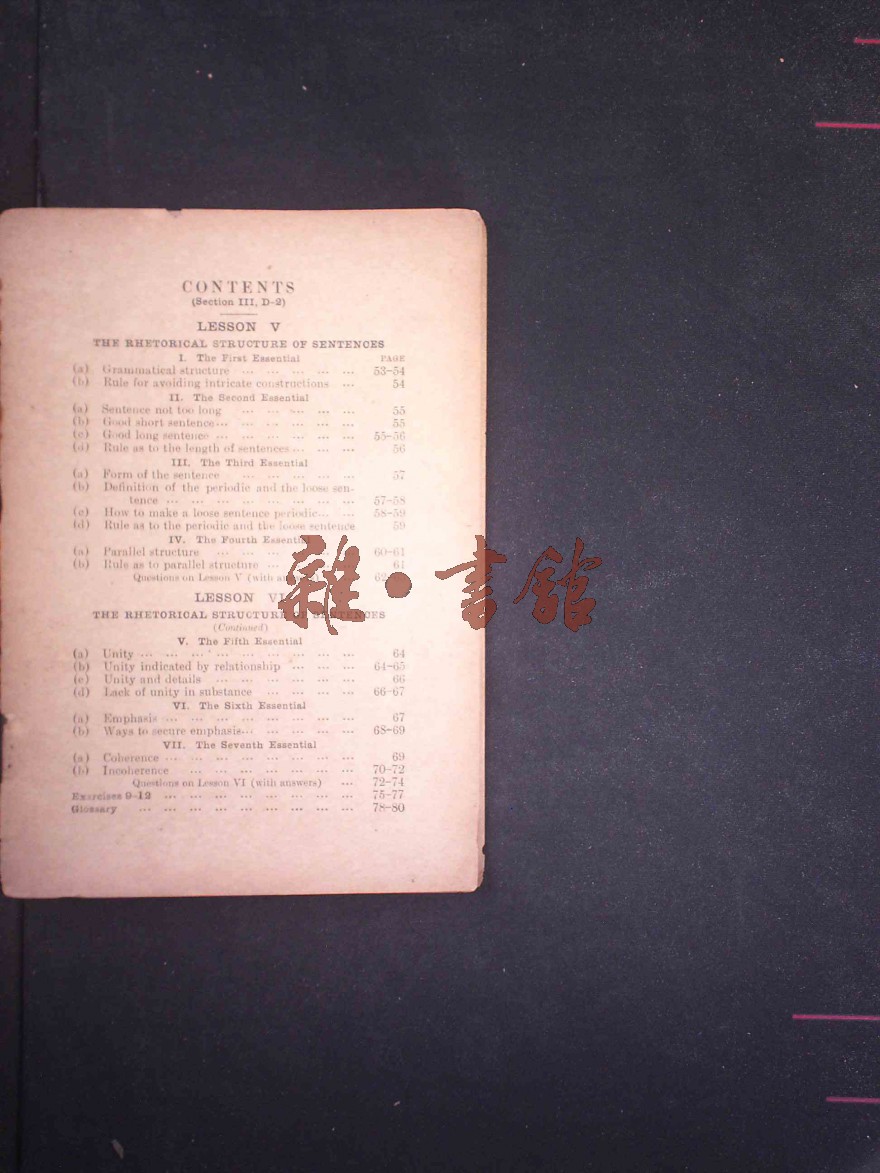 CONTENTS
(Section III, D-2)
LESSON V
THE RHETORICAL STRUCTURE OF SENTENCES
I. The First Essential PAGE
(a) Grammatical structure ... ... ... ... ... 53-54
(b) Rule for avoiding intricate constructions ... 54
II. The Second Essential
(a) Sentence not too long ... ... ... ... ... 55
(b) Good short sentence... ... ... ... ... ... 55
(c) Good long sentence ... ... ... ... ... ... 55-56
(d) Rule as to the length of sentences... ... ... 56
III. The Third Essential
(a) Form of the sentence ... ... ... ... ... 57
(b) Definition of the periodic and the loose sen-
tence ... ... ... ... ... ... ... ... 57-58
(c) How to make a loose sentence periodic... ... 58-59
(d) Rule as to the periodic and the loose sentence 59
IV. The Fourth Essential
(a) Parallel structure ... ... ... ... ... 60-61
(b) Rule as to parallel structure ... ... 61
Questions on Lesson V (with
LESSON VI
THE RHETORICAL STRUCTURE OF SENTENCES
(Continued)
V. The Fifth Essential
(a) Unity ... ... ... ... ... ... ... ... ... 64
(b) Unity indicated by relationship ... ... ... 64-65
(c) Unity and details ... ... ... ... ... ... 66
(d) Lack of unity in substance ... ... ... ... 66-67
VI. The Sixth Essential
(a) Emphasis ... ... ... ... ... ... ... ... 67
(b) Ways to secure emphasis... ... ... ... ... 68-69
VII. The Seventh Essential
(a) Coherence ... ... ... ... ... ... ... ... 69
(b) Incoherence ... ... ... ... ... ... ... 70-72
Questions on Lesson VI (with answers) ... 72-74
Exercises 9-12 ... ... ... ... ... ... ... ... 75-77
Glossary ... ... ... ... ... ... ... ... ... 78-80
雜·書舘